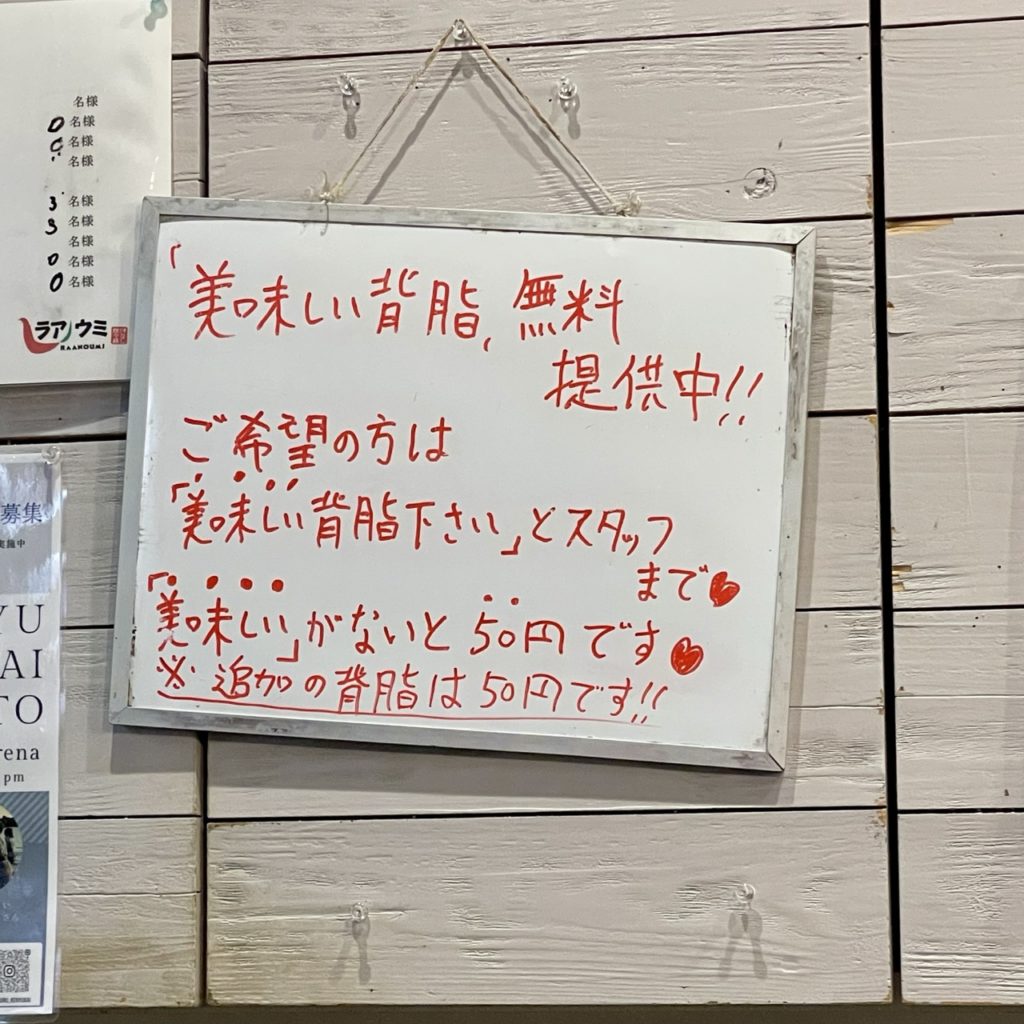 名様
0 名様
名様
名様
3 名様
名様
名様
0 名様
0 名様
ラアノウミ
RAANOUMI
「美味しい背脂」無料
提供中!!
ご希望の方は
「美味しい背脂下さい」とスタッフ
まで♥
「美味しい」がないと50円です♥
※追加の背脂は50円です!!
募集
実施中
YU
AI
TO
rena
pm